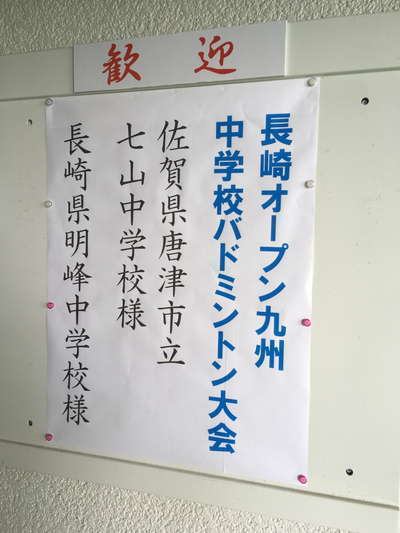 歓迎
長崎オープン九州
中学校バドミントン大会
佐賀県唐津市立
七山中学校様
長崎県明峰中学校様